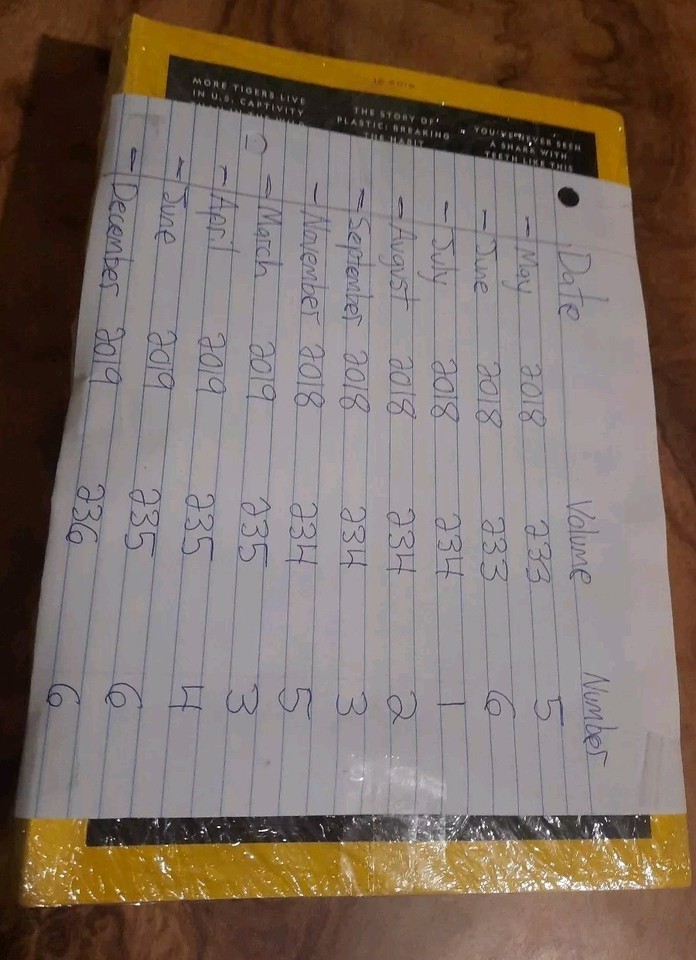 MORE TIGERS LIVE
IN U.S. CAPTIVITY
THE STORY OF
PLASTIC: BREAKING
THE HABIT
YOU'VE NEVER SEEN
A SHARK WITH
TEETH LIKE THIS
Date Volume Number
- May 2018 233 5
- June 2018 233 6
- July 2018 234 1
- August 2018 234 2
- September 2018 234 3
- November 2018 234 5
- March 2019 235 3
- April 2019 235 4
- June 2019 235 6
- December 2019 236 6